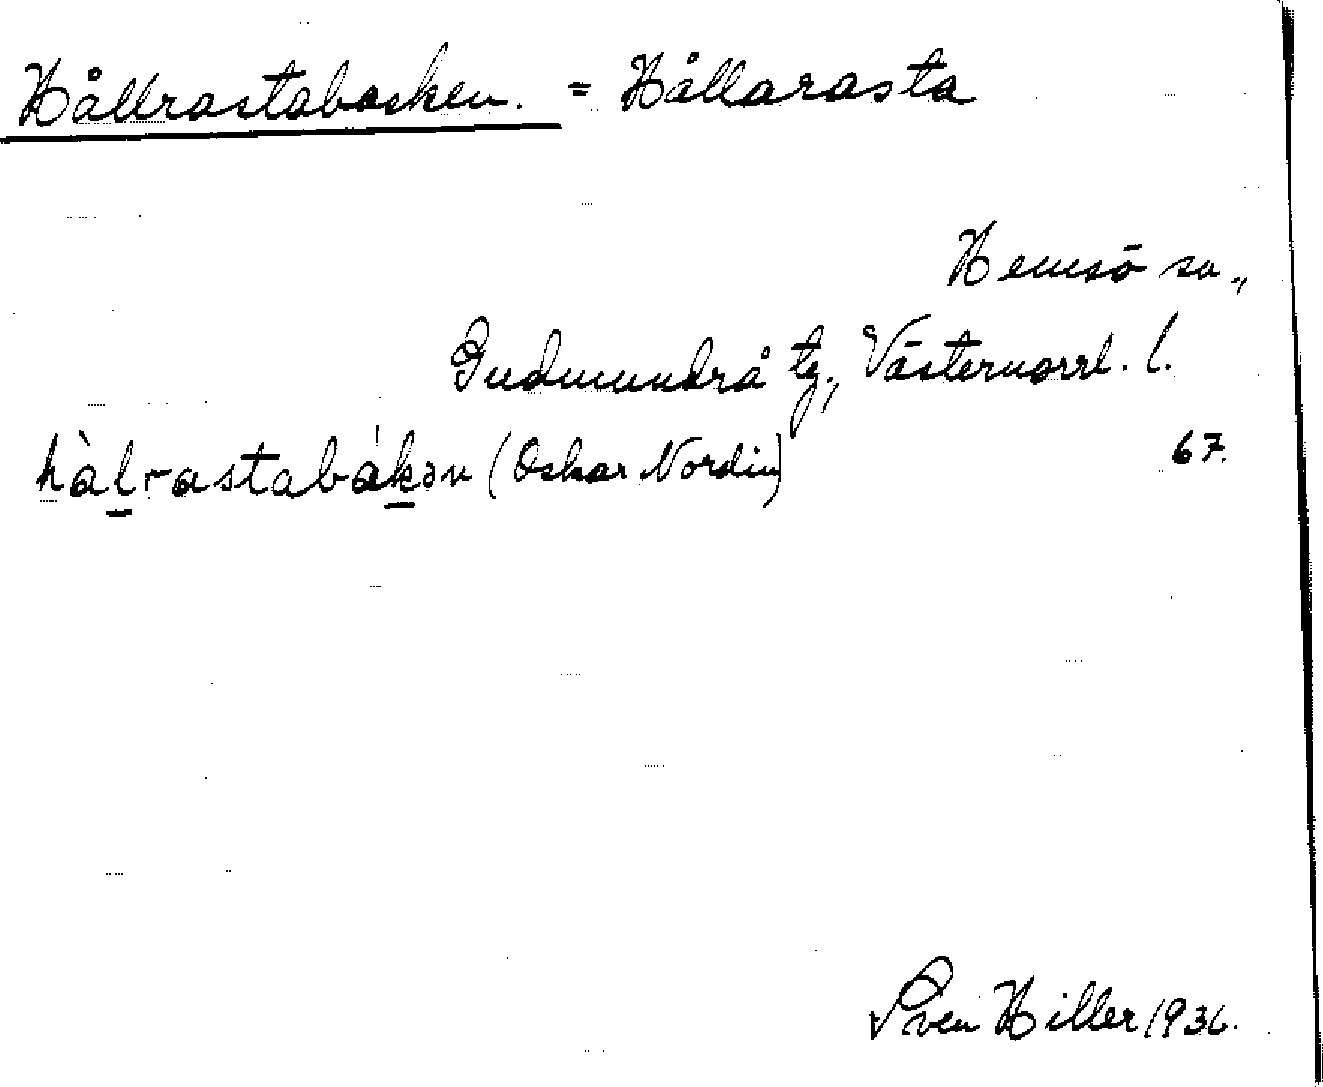 Hållrastabacken. = Hållarasta
Hemsö sn.,
Gudmundrå tg., Västernorrl. l.
hàlrastabákən (Oskar Nordin)
67.
Sven Hiller 1936.